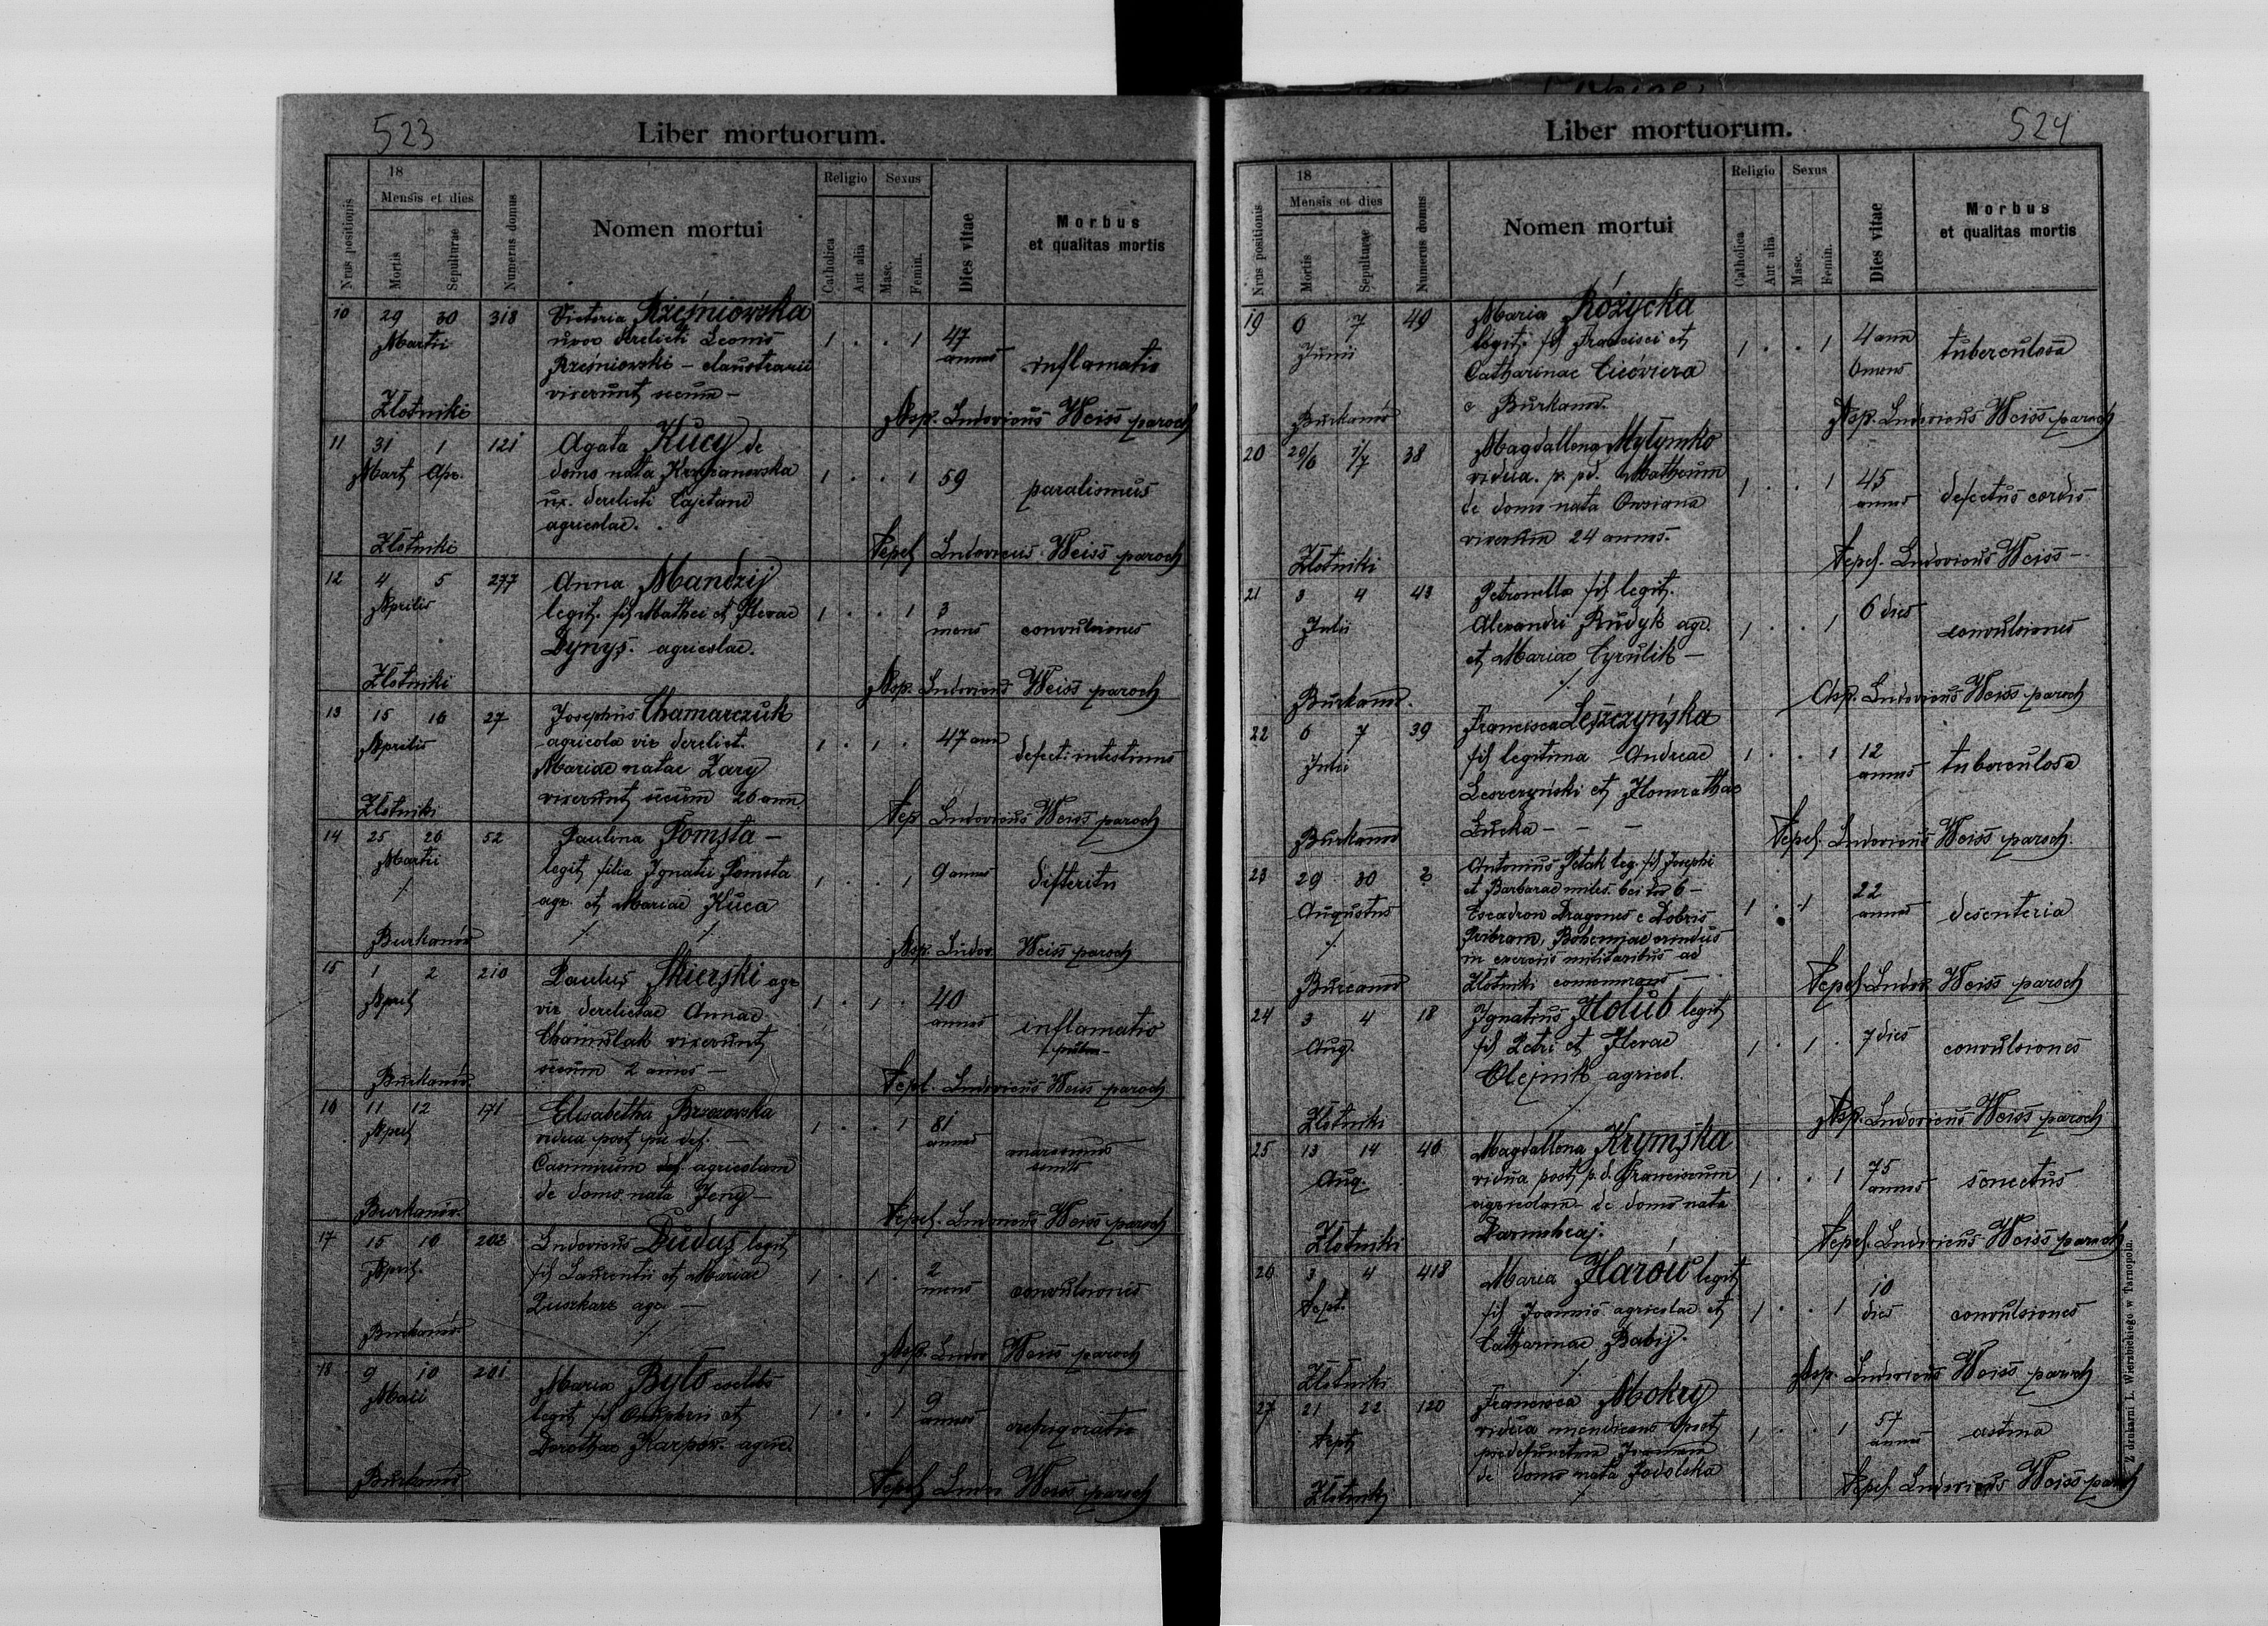 523
Liber mortuorum.
Nrus positionis
18
Mensis et dies
Mortis
Sepulturae
Numerus domus
Nomen mortui
Religio
Catholica
Aut alia
Sexus
Masc.
Femin.
Dies vitae
Morbus
et qualitas mortis
10 29 30 318 Victoria Rześniowska
Martii uxor derelicti Leonis 1 . . 1 47
annos inflamatio
Rześniowski – claustrarii
vixerunt secum –
Złotniki Asp. Ludovicus Weiss paroch
11 31 1 121 Agata Kucy de
Mart Apr. domo nata 1 . . 1 59 paralismus
ux. derelicti Cajetani
agricolae.
Złotniki Sepel Ludovicus Weiss paroch
12 4 5 277 Anna Mandzij
Aprilis legit. fil Mathei et Ilevae 1 . . 1 3
mens convulsiones
Dynys. agricolae.
Złotniki Asp. Ludovicus Weiss paroch
13 15 16 27 Josephus Chamarczuk
Aprilis agricola vir derelict. 1 . 1 . 47 ann
Mariae natae Zary defect. intestinus
vixerunt secum 20 ann.
Złotniki Sep Ludovicus Weiss paroch
14 25 26 52 Paulina Pomsta –
Martii legit filia Ignatii Pomsta 1 . . 1 9 annos difteritis
agr. et Mariae Kuca
Burkanów Asp. Ludov. Weiss paroch
15 1 2 210 Paulus Skierski agr
April vir derelictae Annae 1 . 1 . 40
annos inflamatio
vixerunt
secum 2 annos –
Burkanów Sepel. Ludovicus Weiss paroch
16 11 12 171 Elisabetha Brzozowska
April vidua post pie def. – 1 . . 1 81
annos
Casimirum agricolam
de domo nata Jeny –
Burkanów Sepel. Ludovicus Weiss paroch
17 15 16 202 Ludovicus Dudas legit
April. fil Laurentii et Mariae 1 . 1 2
mens convulsiones
agr. –
Burkanów Asp. Ludov Weiss paroch
18 9 10 201 Maria Było coelebs
Maii legit fil Onuphrii et 1 . . 1 9
annos refrigoratio
Dorothae Karpów. agric.
Burkanów Sepel Ludov Weiss paroch
524
Liber mortuorum.
Nrus positionis
18
Mensis et dies
Mortis
Sepulturae
Numerus domus
Nomen mortui
Religio
Catholica
Aut alia
Sexus
Masc.
Femin.
Dies vitae
Morbus
et qualitas mortis
19 6 7 49 Maria Różycka
Junii legit. fil Francisci et 1 . . 1 4 ann
6 mens tuberculosa
Catharinae
e Burkanow.
Burkanów Asp. Ludovicus Weiss paroch
20 29/6 1/7 38 Magdallena Mytymko
vidua. p. pd. Matheum 1 . . 1 45
annos defectus cordis
de domo nata
24 annos.
Złotniki Sepel. Ludovicus Weiss –
21 3 4 43 Petronella fil legit.
Julii Alexandri Rudyk agr. 1 . . 1 6 dies convulsiones
et Mariae Cyrulik –
Burkanow. Asp. Ludovicus Weiss paroch
22 6 7 39 Francisca Leszczyńska
Julii fil legitima Andreae 1 . . 1 12
annos tuberculosa
Leszczyński et
Łucka – – –
Burkanów Sepel. Ludovicus Weiss paroch.
23 29 30 2 Antonius Petak leg. fil Josephi
et Barbarae miles 6
Augustus Escadron Dragones e Dobris 1 . 1 22
annos desenteria
Pribram, Bohemiae orindus
in exerciis militaribus ad
Złotniki
Burcanow Sepel. Ludov. Weiss paroch
24 3 4 18 Ignatius Hołub legit
Aug. fil Petri et Ilevae 1 . 1 . 7 dies convulsiones
Olejnik agricol.
Złotniki Asp. Ludovicus Weiss paroch
25 13 14 46 Magdallena Krymska
Aug. vidua post p.d. Franciscum 1 . . 1 75
annos senectus
agricolam de domo nata
Złotniki Sepel. Ludovicus Weiss paroch
26 3 4 418 Maria Harów legit
Sept. fil Joannis agricolae et 1 . . 1 10
dies convulsiones
Catharinae Babij.
Złotniki Asp. Ludovicus Weiss paroch
27 21 22 120 Francisca Mokry
Sept vidua mendicans post 1 . . 1 57
annos astma
predefunctum
de domo nata Podolska
Złotniki Sepel. Ludovicus Weiss paroch
Z drukarni L. Wierzbickiego w Tarnopolu.